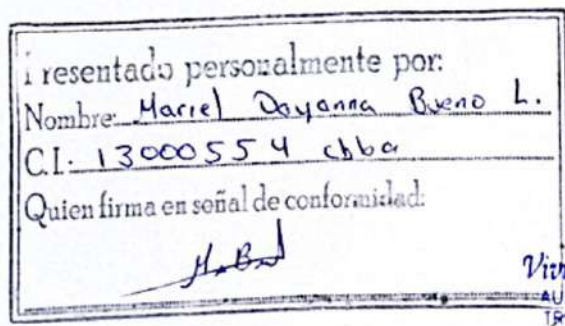 Presentado personalmente por:
Nombre: Mariel Dayanna Bueno L.
C.I.: 13000554 cbba
Quien firma en señal de conformidad:
M.B.
AU